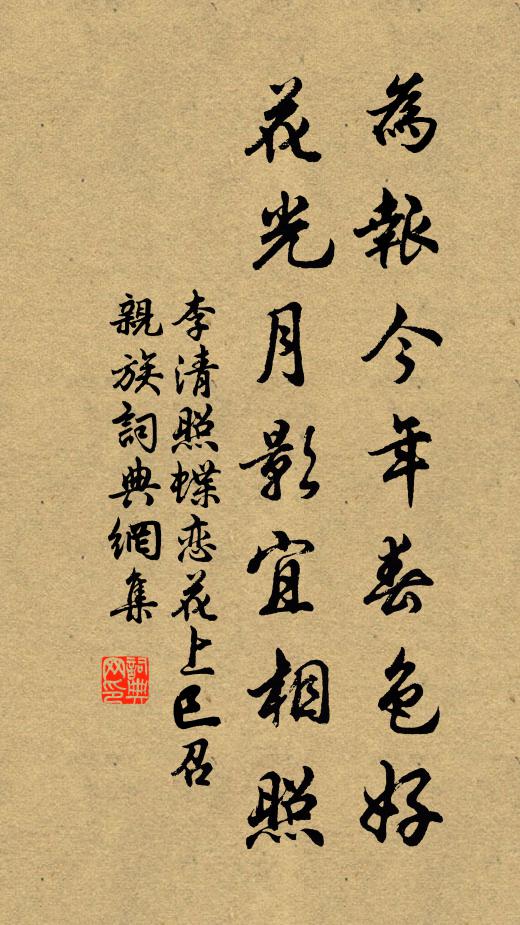 為報今年春色好
花光月影宜相照
李清照蝶恋花上巳召
親族詞典網集
詞典網印